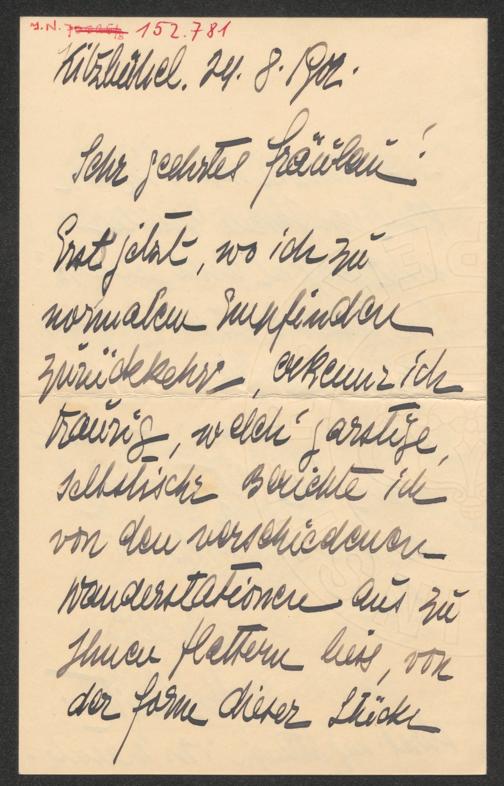 J.N. 152.781
Kitzbühel. 24. 8. 1902.
Sehr geehrtes Fräulein!
Erst jetzt, wo ich zu
normalem Empfinden
zurückkehre, erkenne ich
traurig, welch' garstige,
selbstische Berichte ich
von den verschiedenen
Wanderstationen aus zu
Ihnen flattern liess, von
der Form dieser Stücke